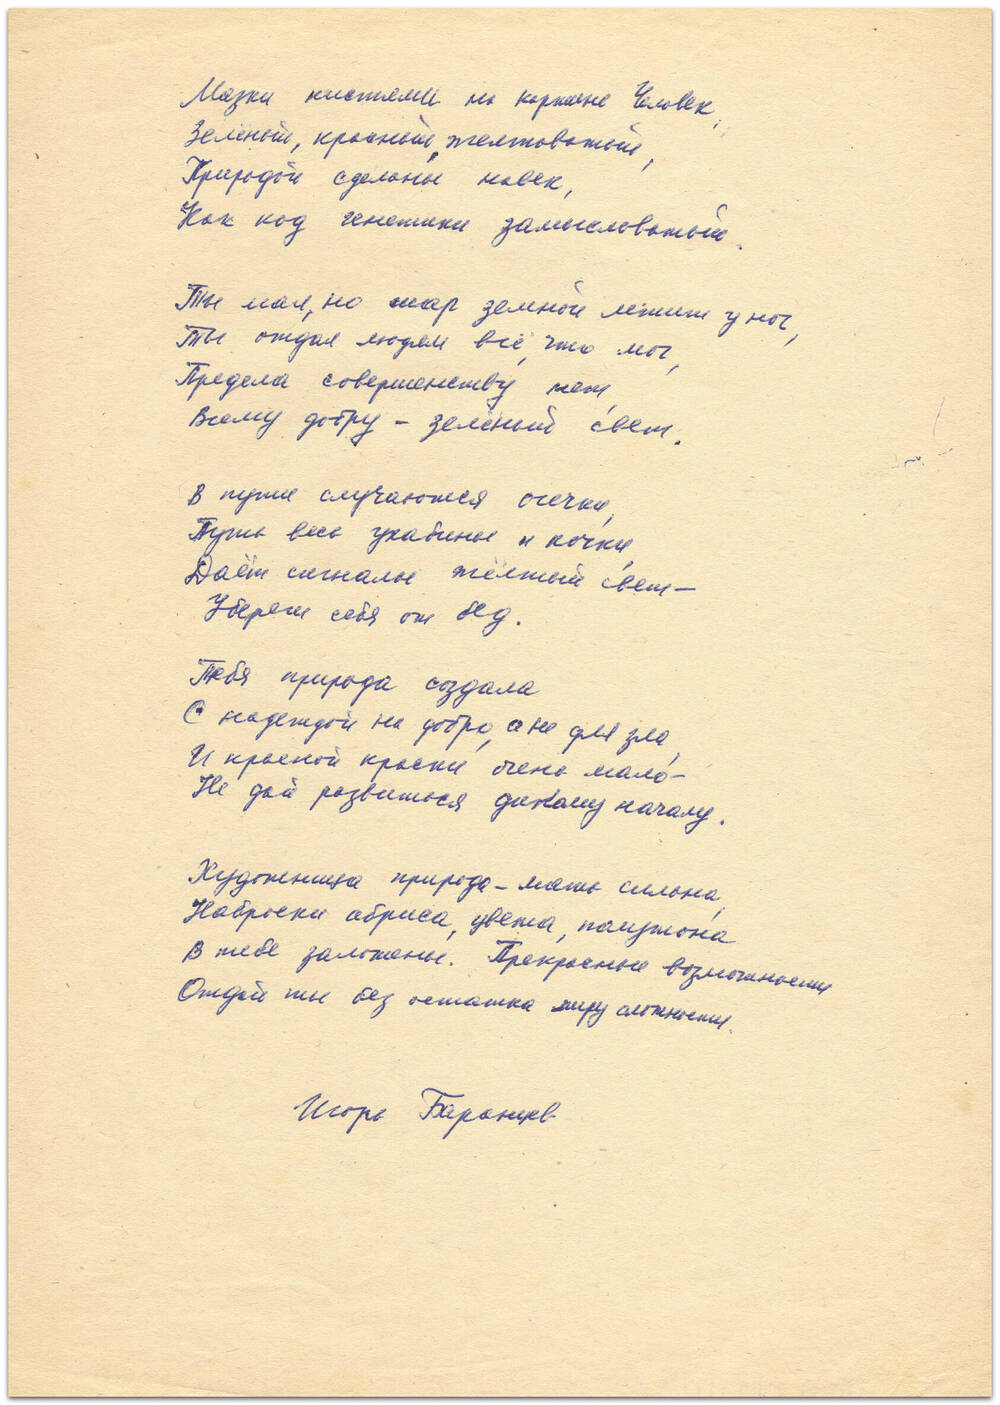 Мазки кистями на картине Человек,
Зелёный, красный, желтоватый,
Природой сделаны навек,
Как код генетики замысловатый.
Ты мал, но шар земной лежит у ног,
Ты отдал людям всё, что мог,
Предела совершенству нет,
Всему добру – зелёный свет.
В пути случаются осечки,
Путь весь ухабины и кочки,
Даёт сигналы жёлтый свет –
Убереги себя от бед.
Тебя природа создала
С надеждой на добро, а не для зла,
И красной краски очень мало –
Не дай развиться дикому началу.
Художница природа – мать сильна,
Наброски абриса, цвета, полутона
В тебе заложены. Прекрасные возможности
Отдай ты без остатка миру сложности.
Игорь